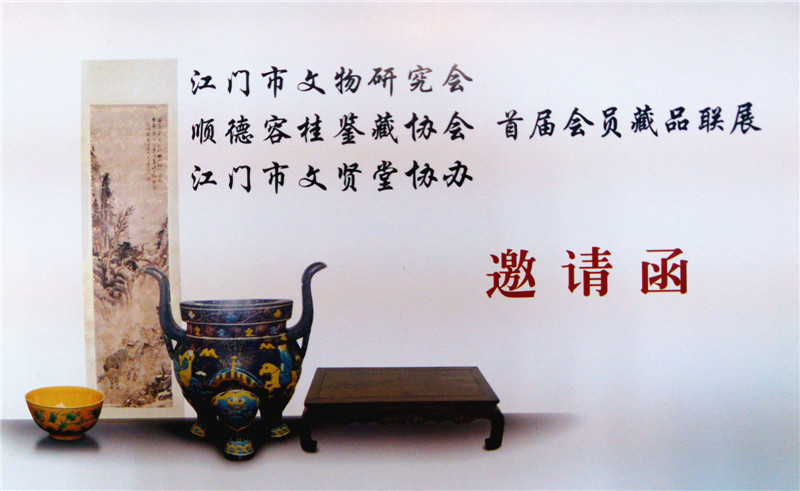 江门市文物研究会
顺德容桂鉴藏协会 首届会员藏品联展
江门市文贤堂协办
邀请函